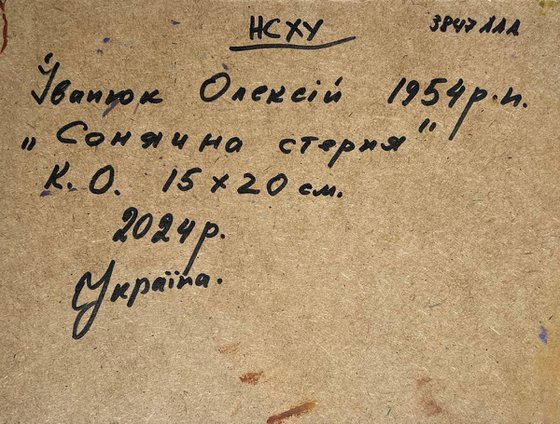 НСХУ 3847 ААА
Іванюк Олексій 1954 р.н.
„Сонячна стерня"
К.О. 15 х 20 см.
2024 р.
Україна.